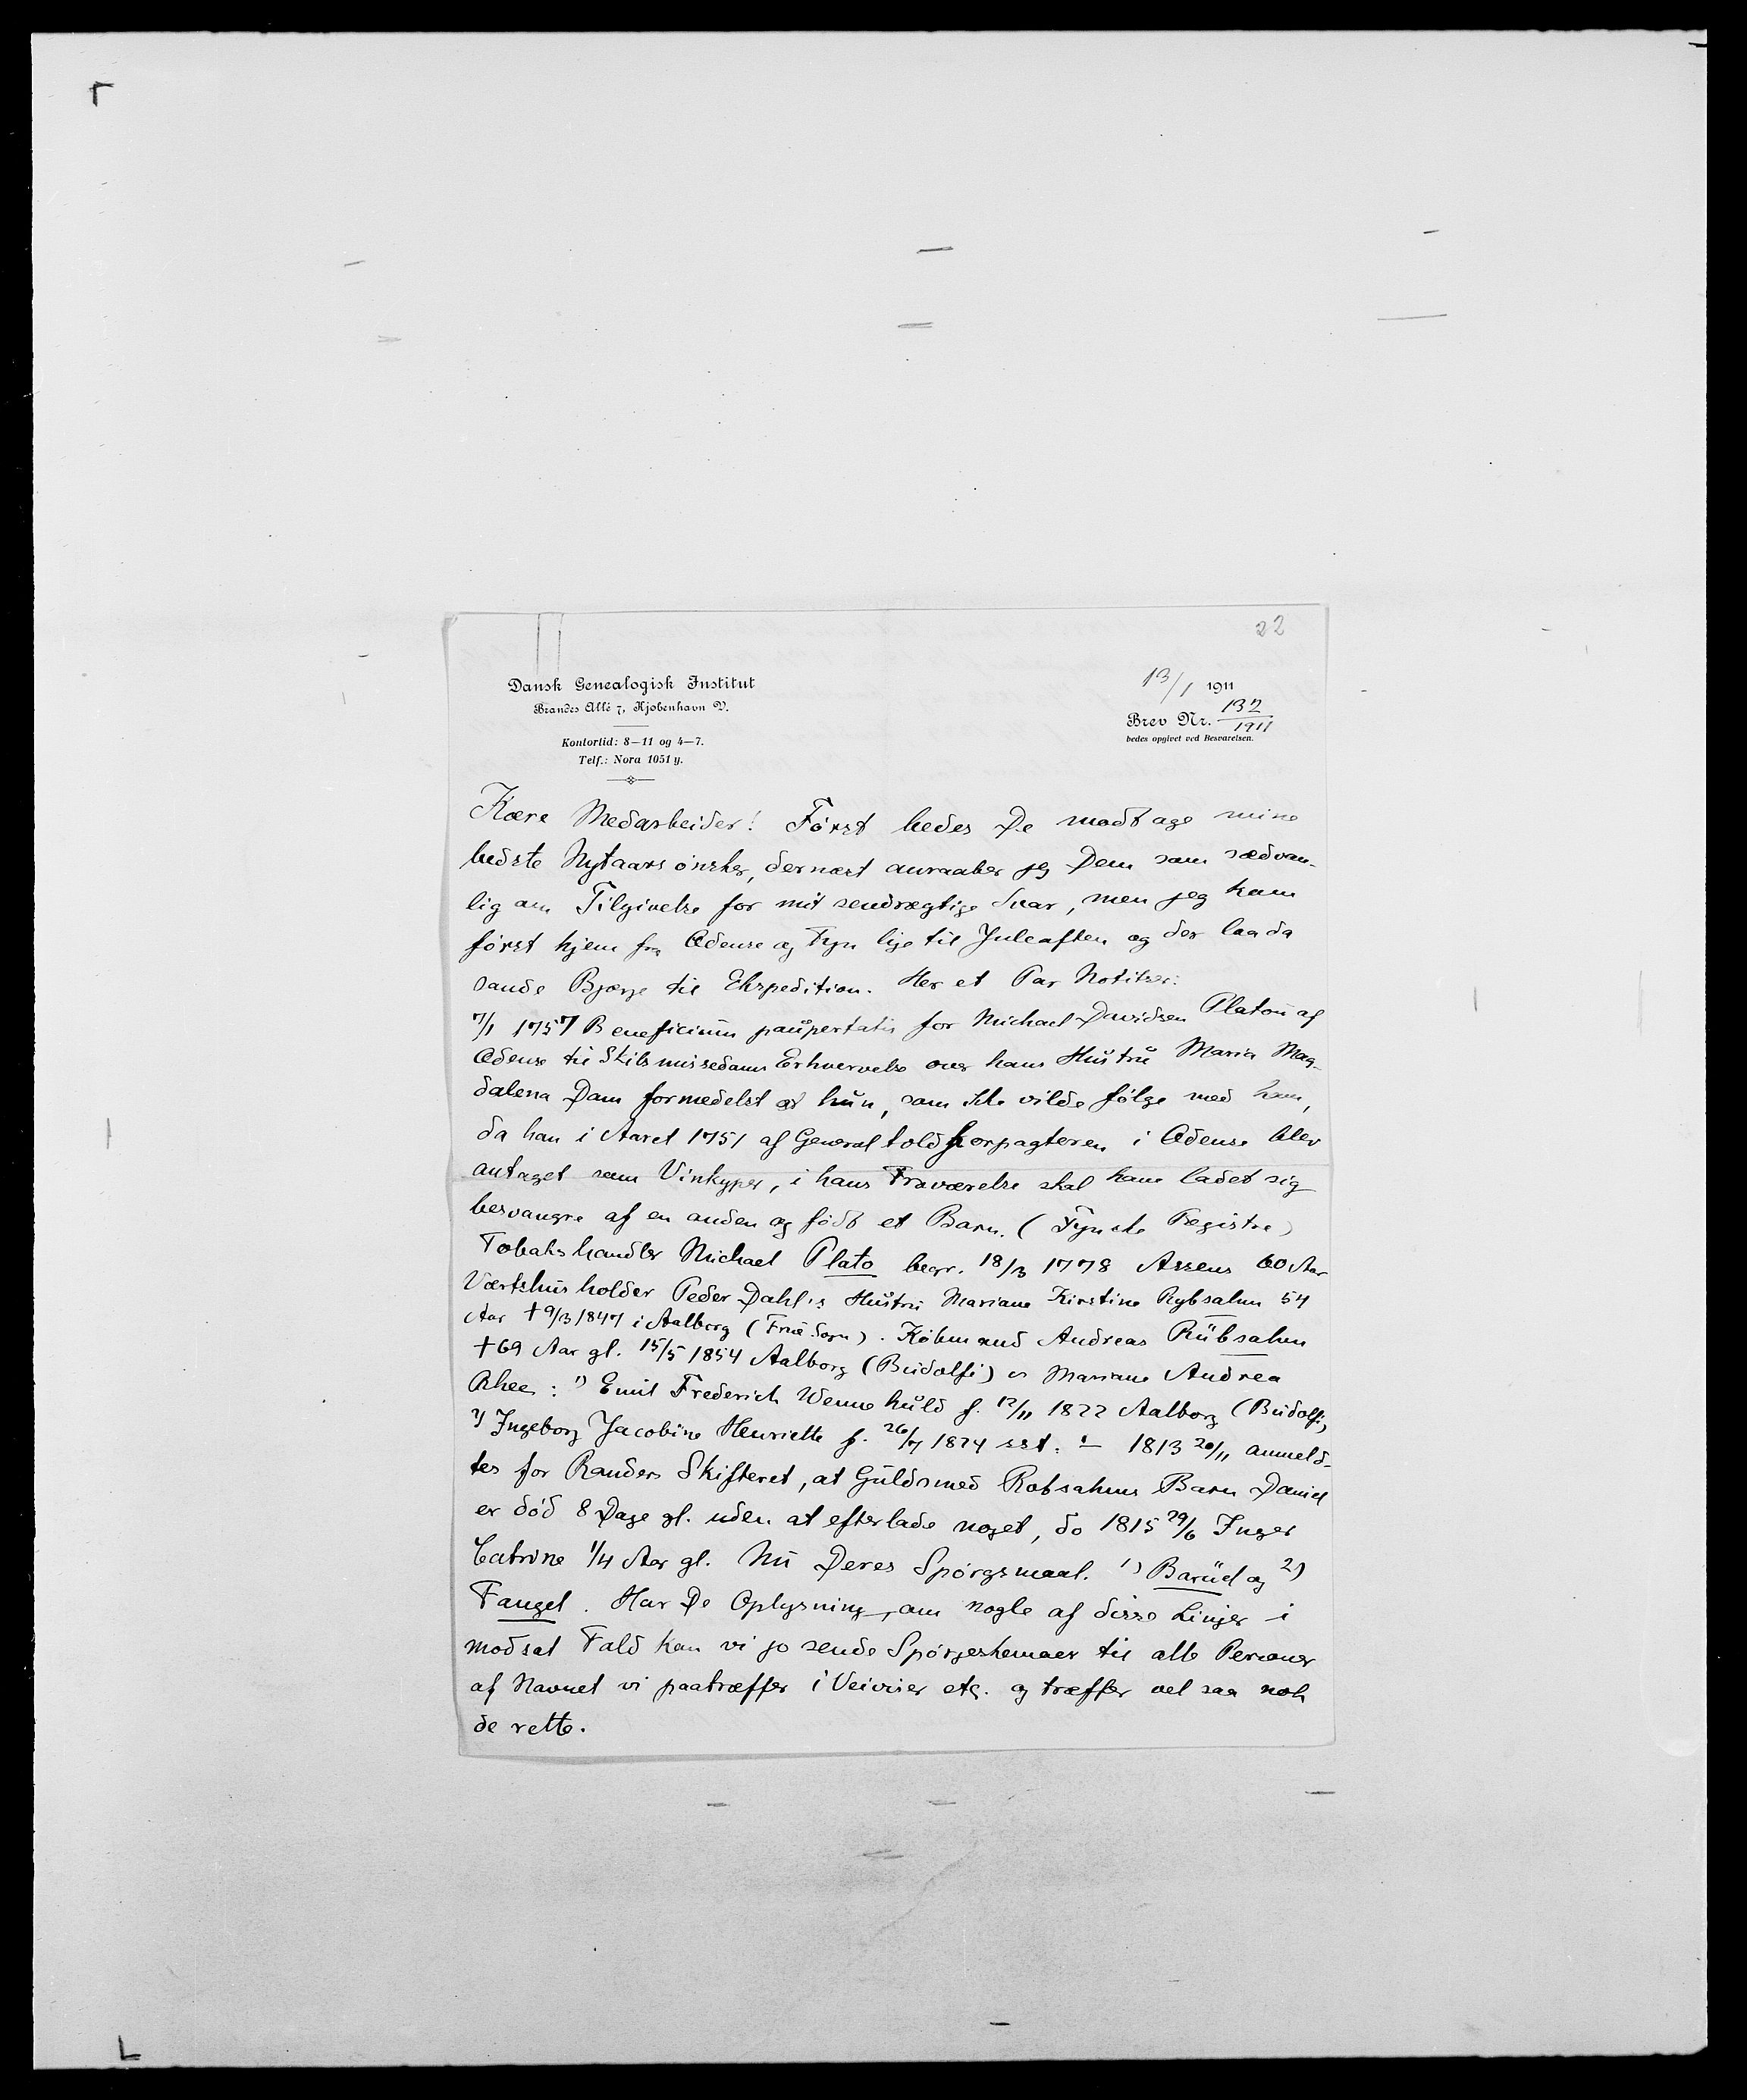 22
Dansk Genealogisk Institut
Brandes Allé 7, Kjøbenhavn V.
Kontortid: 8—11 og 4—7.
Telf.: Nora 1051 y.
13/1 1911
Brev Nr. 132/1911
bedes opgivet ved Besvarelsen.
Kære Medarbeider! Først bedes De modtage mine
bedste Nytaarsønsker, dernæst anraaber jeg Dem som sædvan-
lig om Tilgivelse for mit sendrægtige Svar, men jeg kom
først hjem fra Odense og Fyn lige til Juleaften og der laa da
sande Bjerge til Ekspedition. Her et Par Notitser:
7/1 1757 Beneficium paupertatis for Michael Davidsen Platou af
Odense til Skilsmissedoms Erhvervelse over hans Hustru Maria Mag-
dalena Dam formedelst at hun, som ikke vilde følge med ham,
da han i Aaret 1751 af Generaltoldforpagteren i Odense blev
antaget som Vinkyper, i hans Fraværelse skal have ladet sig
besvangre af en anden og født et Barn. (Fynske Registre)
Tobakshandler Michael Plato begr. 18/3 1778 Assens 60 Aar
Værtshusholder Peder Dahl's Hustru Mariane Kirstine Rybsahm 54
Aar † 9/3 1847 i Aalborg (Frue Sogn). Købmand Andreas Rübsahm
† 69 Aar gl. 15/5 1854 Aalborg (Budolfi) Mariane Andrea
Rhee: 1) Emil Frederich Wennehuld f. 12/11 1822 Aalborg (Budolfi),
2) Ingeborg Jacobine Henriette f. 26/7 1824 sst. — 1813 20/11 anmeld-
tes for Randers Skifteret, at Guldsmed Robsahms Barn Daniel
er død 8 Dage gl. uden at efterlade noget, do 1815 29/6 Inger
Catrine 1/4 Aar gl. Nu Deres Spørgsmaal. 1) Baruël og 2)
Fangel. Har De Oplysning om nogle af disse Linjer i
modsat Fald kan vi jo sende Spørgeskemaer til alle Personer
af Navnet vi paatræffer i Veiviser etc. og træffer vel saa nok
de rette.